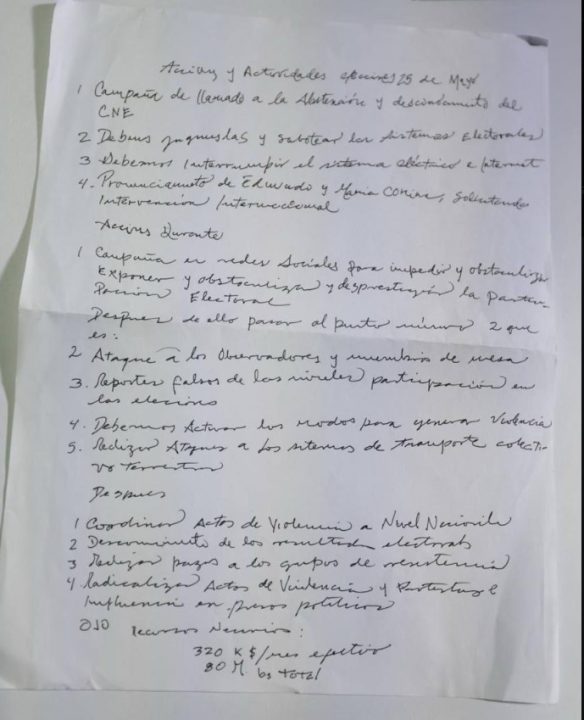 Acciones y Actividades elecciones 25 de Mayo
1 Campaña de llamado a la Abstención y desconocimiento del
CNE
2 Debemos y sabotear los sistemas Electorales
3 Debemos Interrumpir el sistema eléctrico e Internet
4. Pronunciamiento de Edmundo y Maria Corina, Solicitando
Intervención Internacional
Acciones Durante
1 Campaña en redes Sociales para impedir y obstaculizar
Exponer y obstaculizar y desprestigiar la partici-
pación Electoral
Despues de ello pasar al punto número 2 que
es:
2 Ataque a los Observadores y miembros de mesa
3. Reportes falsos de los niveles participación en
las elecciones
4. Debemos Activar los nodos para generar Violencia
5. Realizar Ataques a los sitemas de transporte colecti-
vo terrestre
Despues
1 Coordinar Actos de Violencia a Nivel Nacional
2 Desconocimiento de los resultados electorales
3 Realizar pagos a los grupos de resistencia
4 Radicalizar Actos de Violencia y Protestas e
Influencia en presos politicos
OJO recursos Necesarios:
320 K $/mes efectivo
80 M. bs total